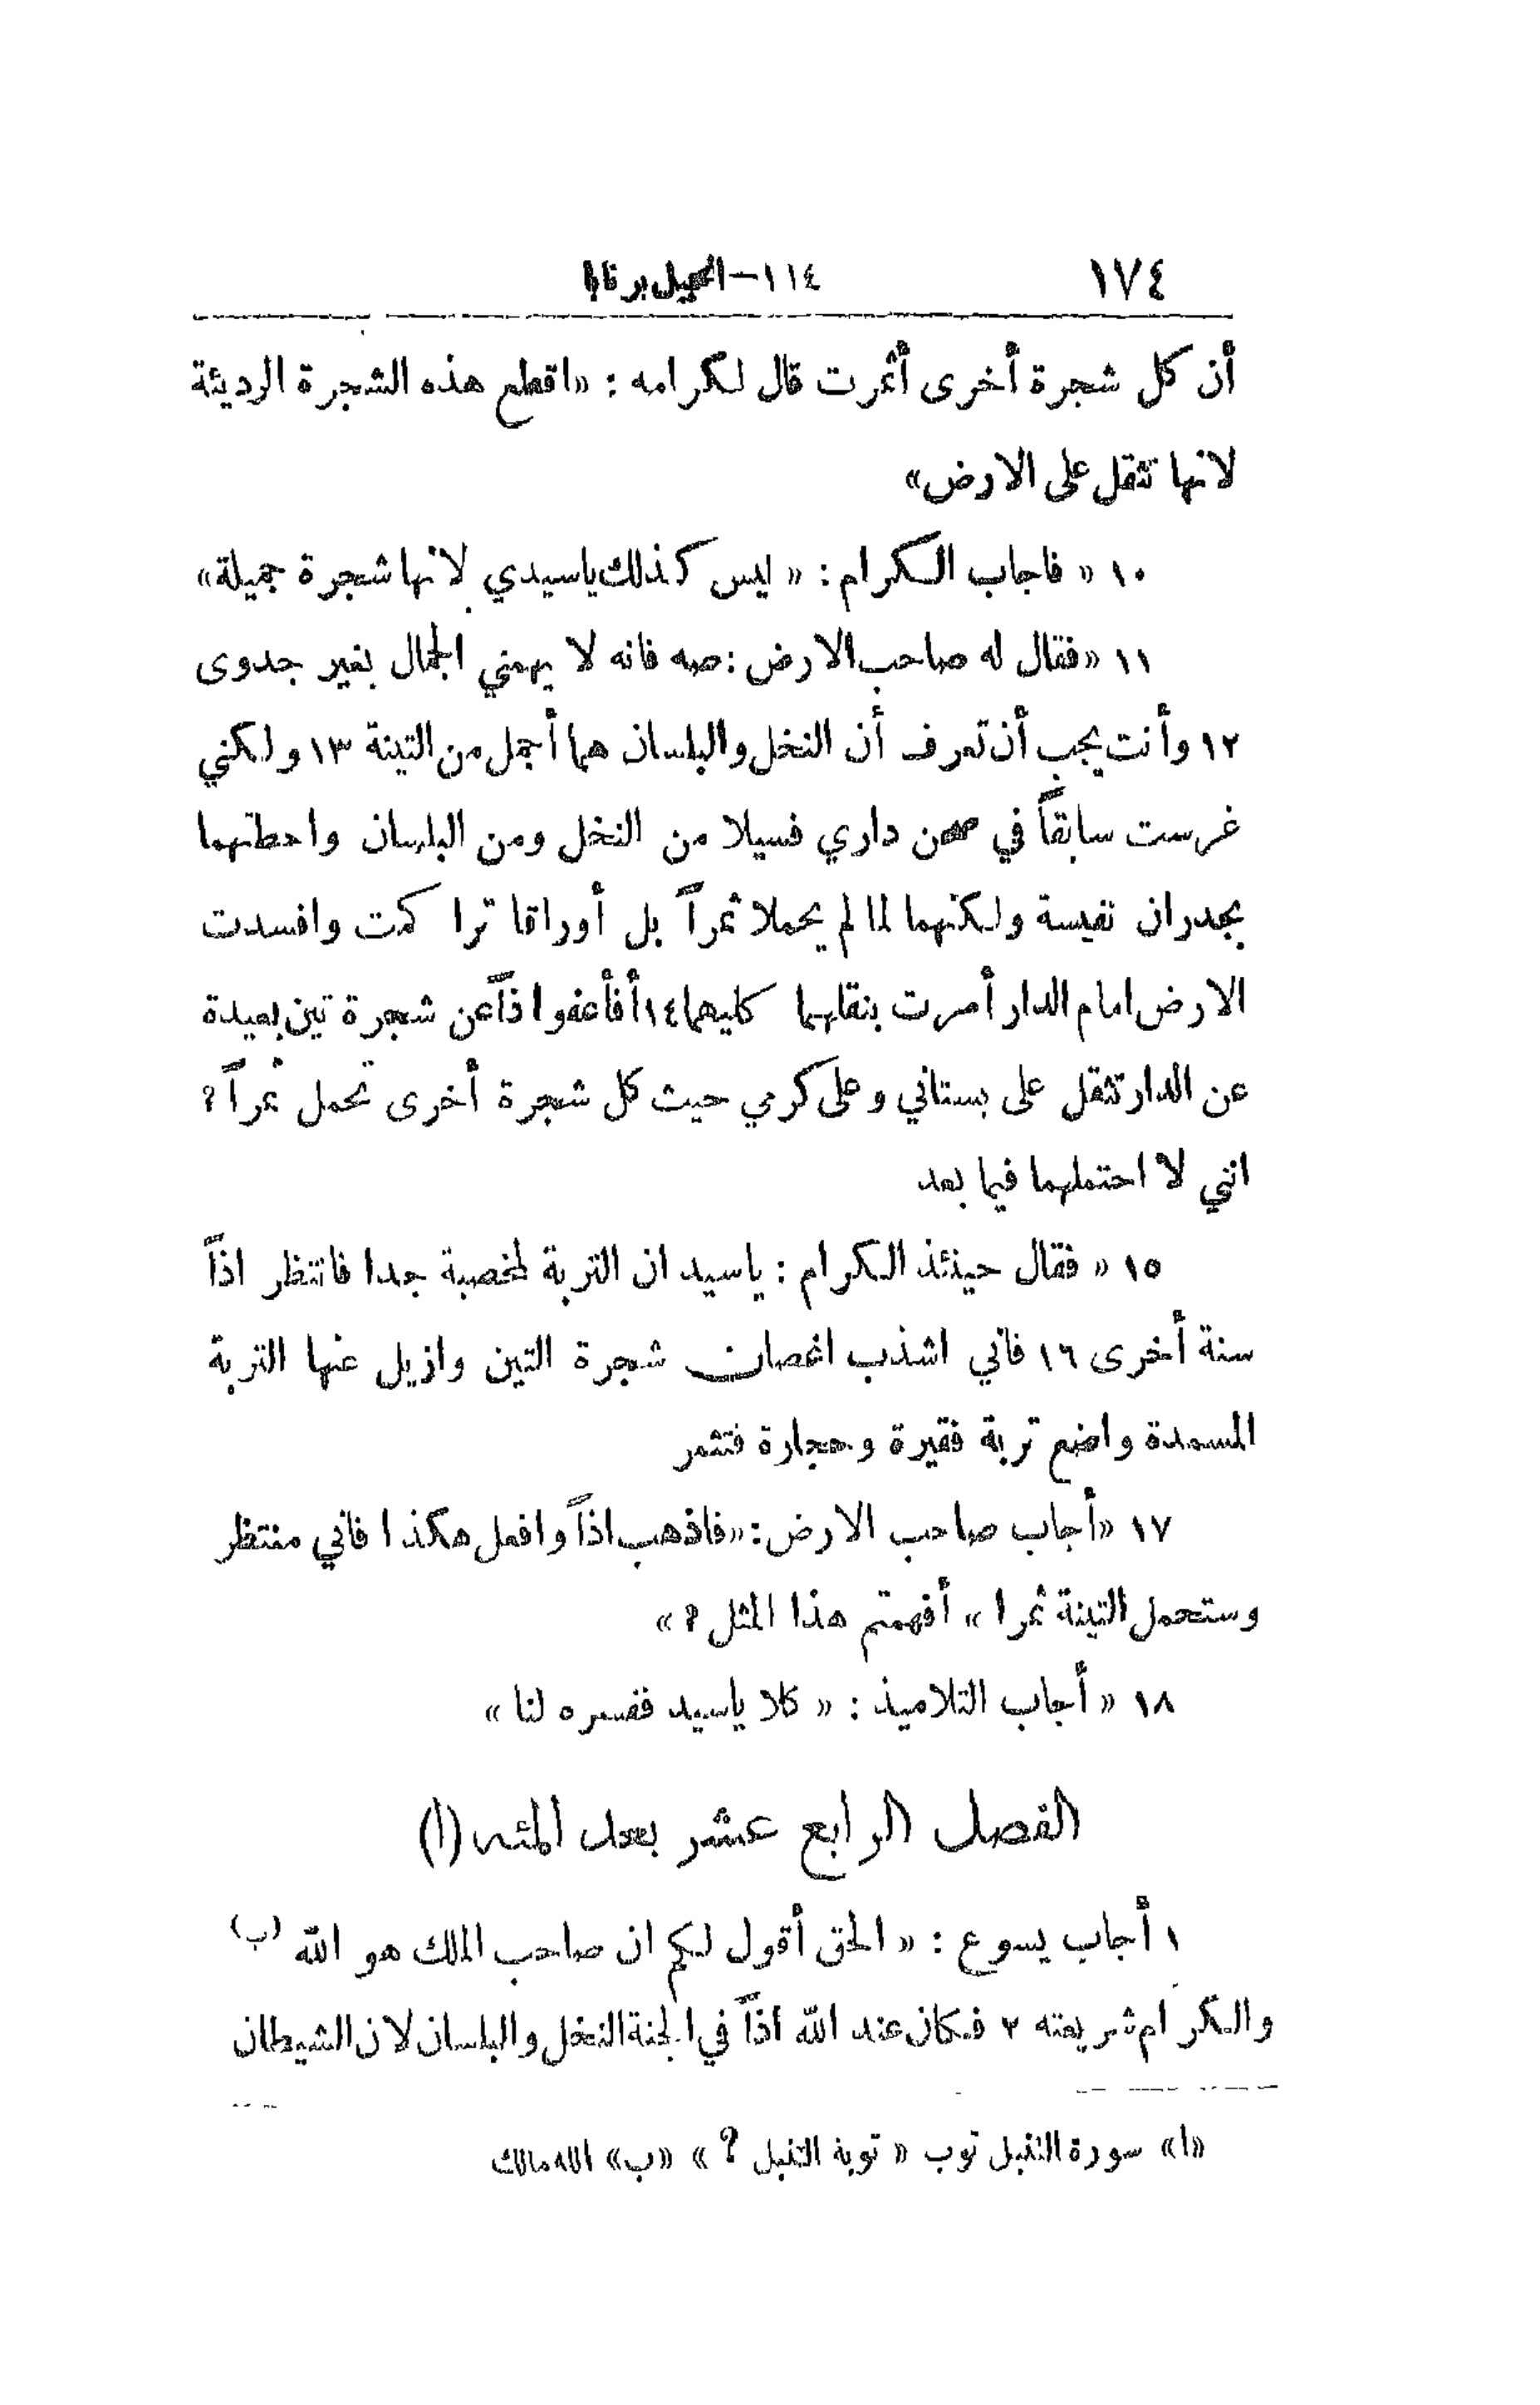 ١٧٤ ١١٤ – انجيل برنابا
أن كل شجرة أخرى أثمرت قال لكرامه : «اقطع هذه الشجرة الرديئة
لانها تثقل على الارض»
١٠ « فاجاب الكرام : « ليس كذلك ياسيدي لانها شجرة جميلة»
١١ «فقال له صاحب الارض : صه فانه لا يهمني الجمال بغير جدوى
١٢ وأنت يجب أن تعرف أن النخل والبلسان هما أجمل من التينة ١٣ ولكني
غرست سابقاً في صحن داري فسيلا من النخل ومن البلسان واحطتهما
بجدران نفيسة ولكنهما لما لم يحملا ثمراً بل أوراقا تراكمت وافسدت
الارض امام الدار أمرت بنقلهما كليهما ١٤ أفأعفو اذاً عن شجرة تين بعيدة
عن الدار تثقل على بستاني وعلى كرمي حيث كل شجرة أخرى تحمل ثمراً ؟
انني لا احتملهما فيما بعد
١٥ « فقال حينئذ الكرام : ياسيد ان التربة لمخصبة جدا فانتظر اذاً
سنة أخرى ١٦ فاني اشذب اغصان شجرة التين وازيل عنها التربة
المسمدة واضع تربة فقيرة وحجارة فتثمر
١٧ «أجاب صاحب الارض : «فاذهب اذاً وافعل هكذا فاني منتظر
وستحمل التينة ثمرا » أفهمتم هذا المثل ؟ »
١٨ « أجاب التلاميذ : « كلا ياسيد ففسره لنا »
الفصل الرابع عشر بعد المئه (ا)
١ أجاب يسوع : « الحق أقول لكم ان صاحب الملك هو الله (ب)
والكرام شريعته ٢ فكان عند الله اذاً في الجنة النخل والبلسان لان الشيطان
«ا» سورة التنبل توب « توبة التنبل ؟ » «ب» الله مالك